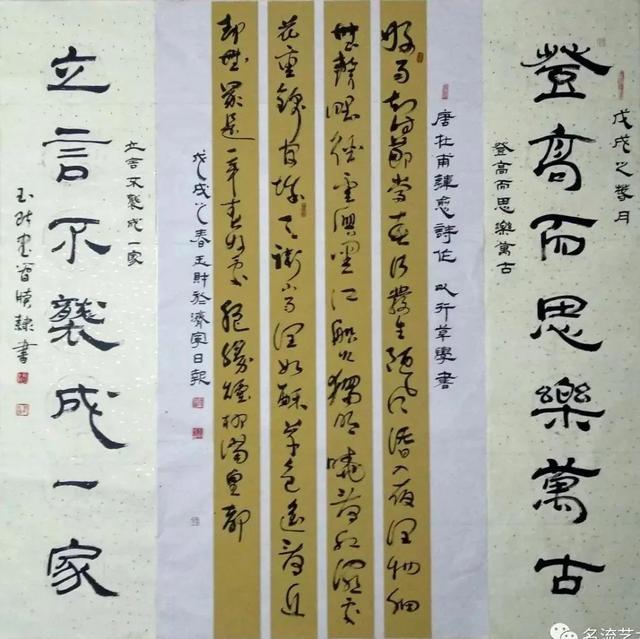 戊戌之春月
登高而思樂萬古
登高而思樂萬古
唐杜甫韓愈詩作 以行草學書
好雨知時節當春乃發生隨風潛入夜潤物細
無聲野徑雲俱黑江船火獨明曉看紅濕處
花重錦官城天街小雨潤如酥草色遙看近
却無最是一年春好處絕勝煙柳滿皇都
戊戌之春玉財於濟寧日報
立言不襲成一家
立言不襲成一家
隸書
名流艺